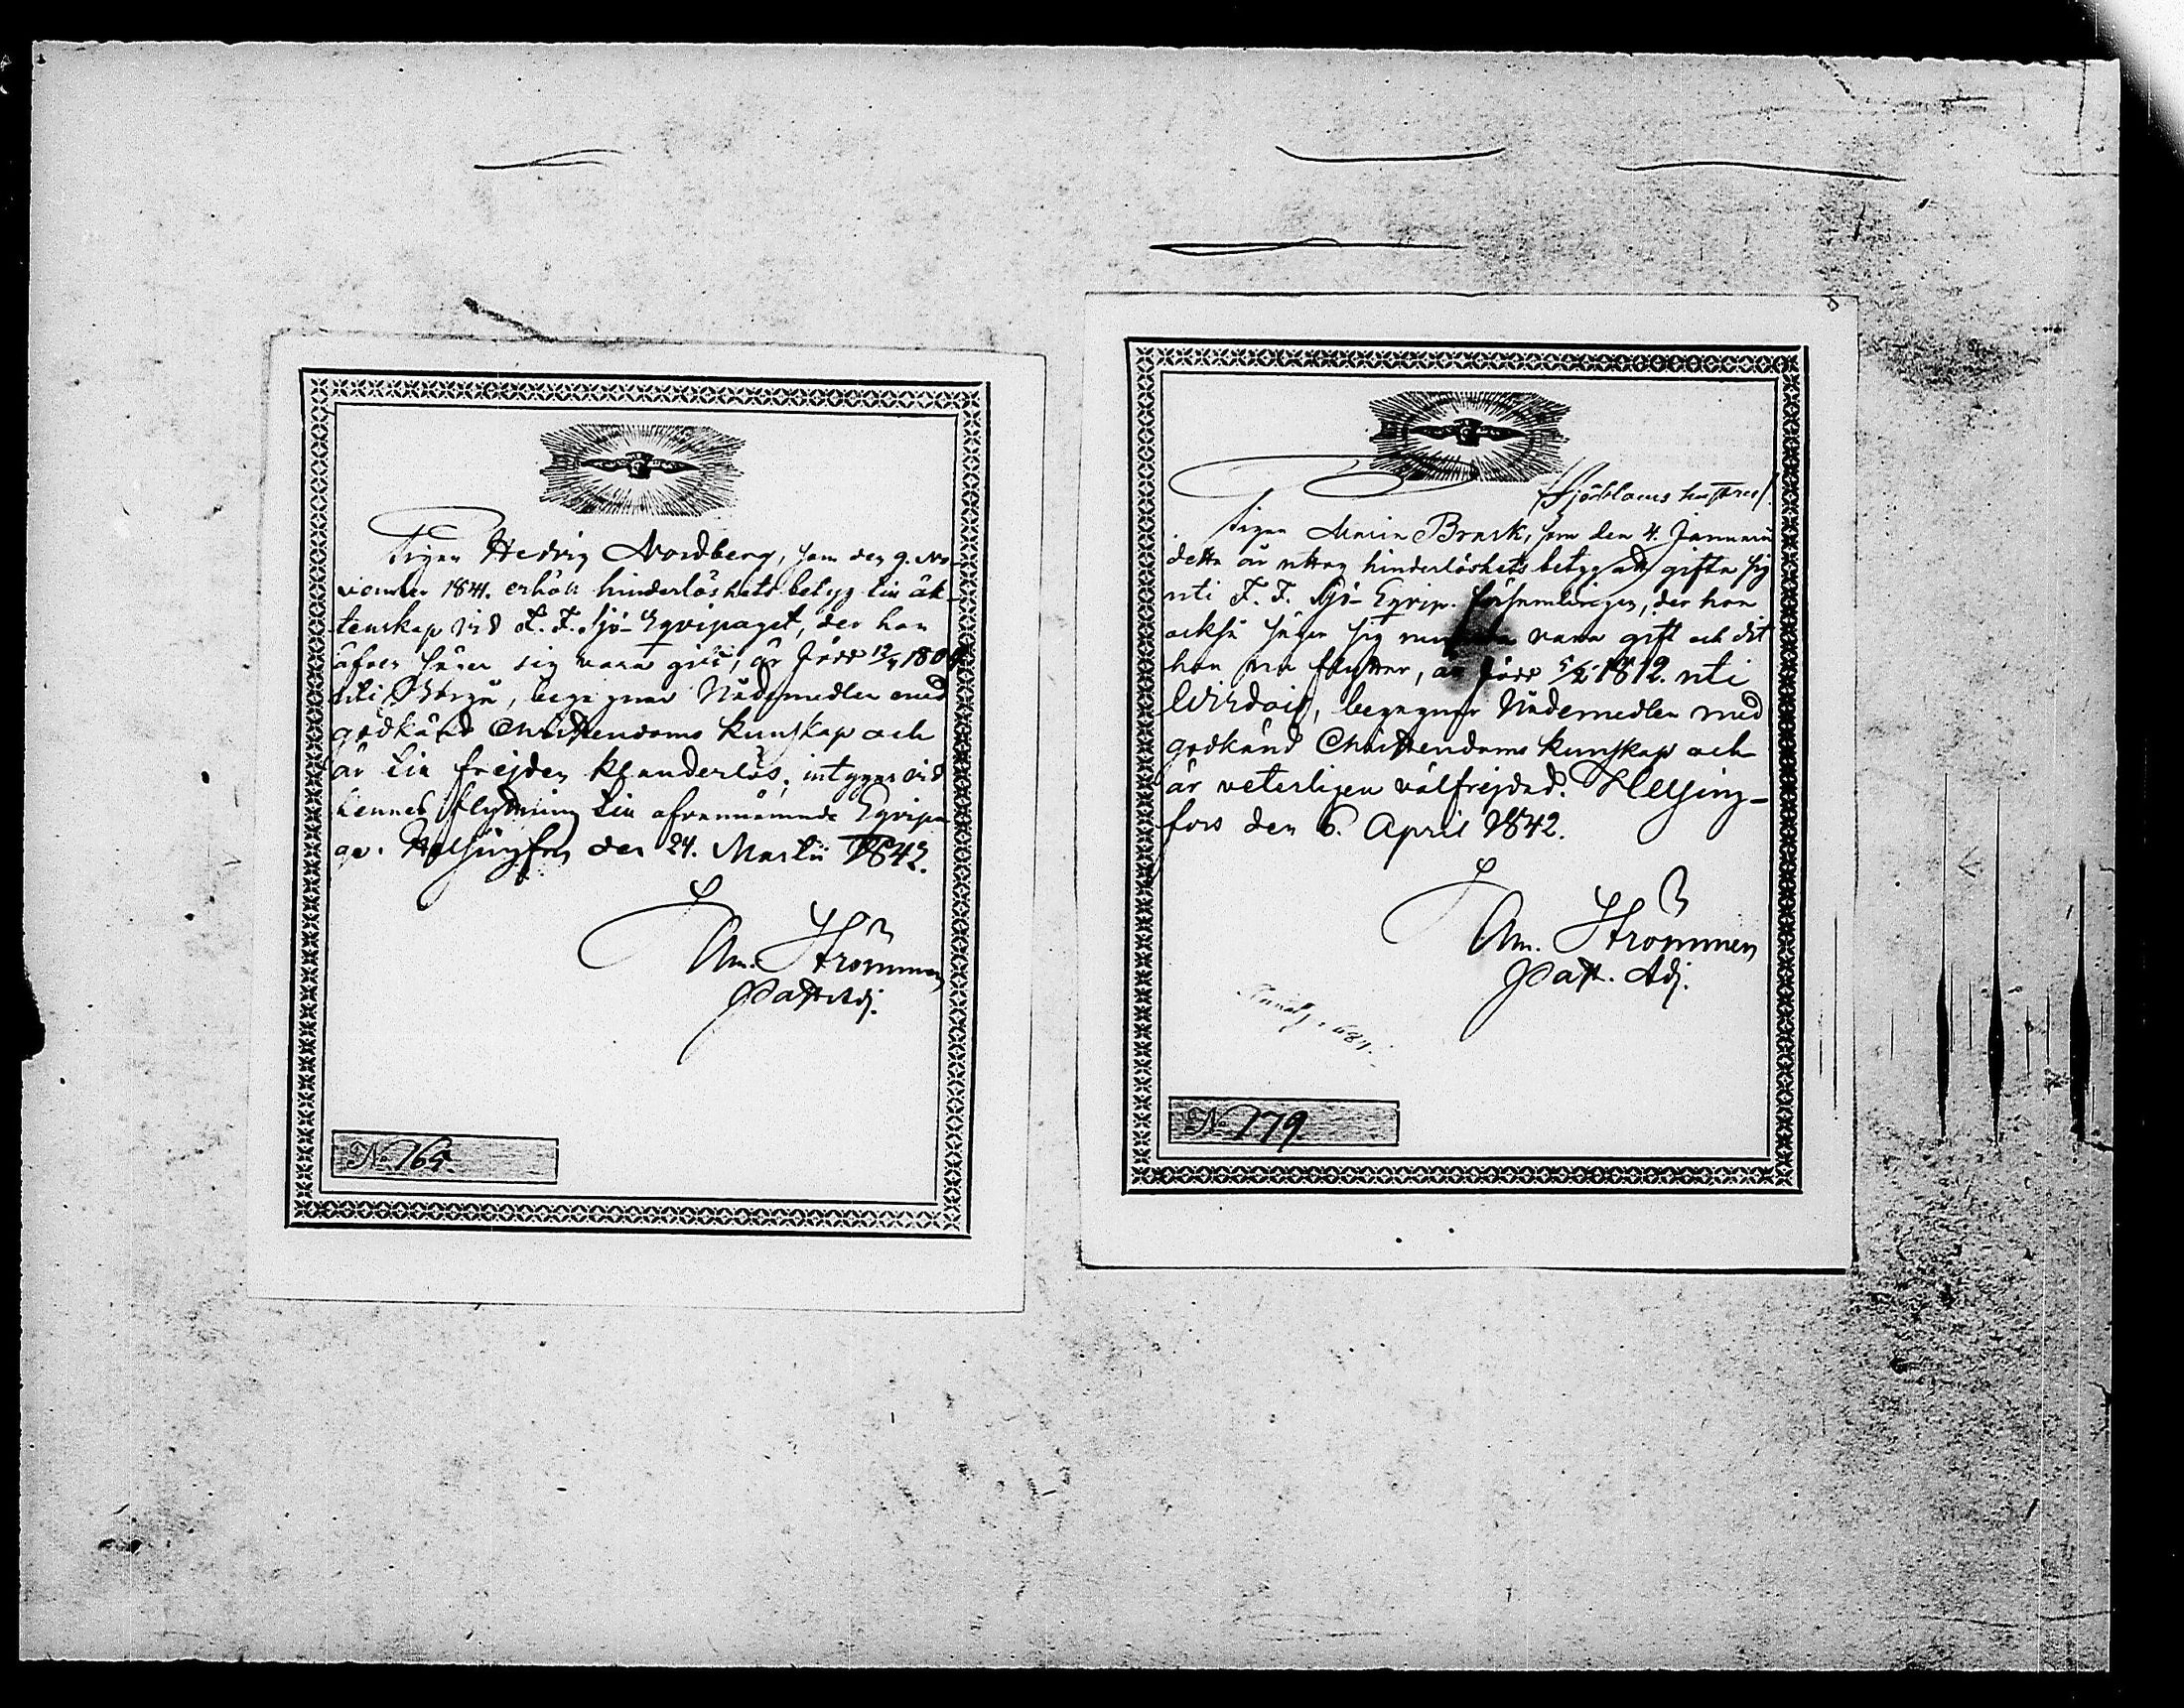 Pigan Hedvig Nordberg, som den 9. No-
vember 1841. erhöll hinderlöshets betyg till äk-
tenskap vid F. F. Sjö-Eqvipaget, der hon
äfven säger sig vara gift, är född 12/4 180
uti Borgå, begagnar Nådemedlen med
godkänd Christendoms kunskap och
är till frejden klanderlös; intygas vid
hennes flyttning till ofvannämnde Eqvipa-
ge. Helsingfors den 24. Martii 1842.
Am. Strömmen
Past. Adj.
No 165.
Sjöbloms hustru
Pigan Maria Brask, som den 4. Januarii
detta år uttog hinderlöshets betyg att gifta sig
uti F. F. Sjö-Eqvip. församlingen, der hon
också säger sig vara gift och dit
hon nu flyttar, är född 5/2 1812. uti
Wirdois, begagnar Nådemedlen med
godkänd Christendoms kunskap och
är veterligen välfrejdad. Helsing-
fors den 6. April 1842.
Am. Strömmen
Past. Adj.
No 179